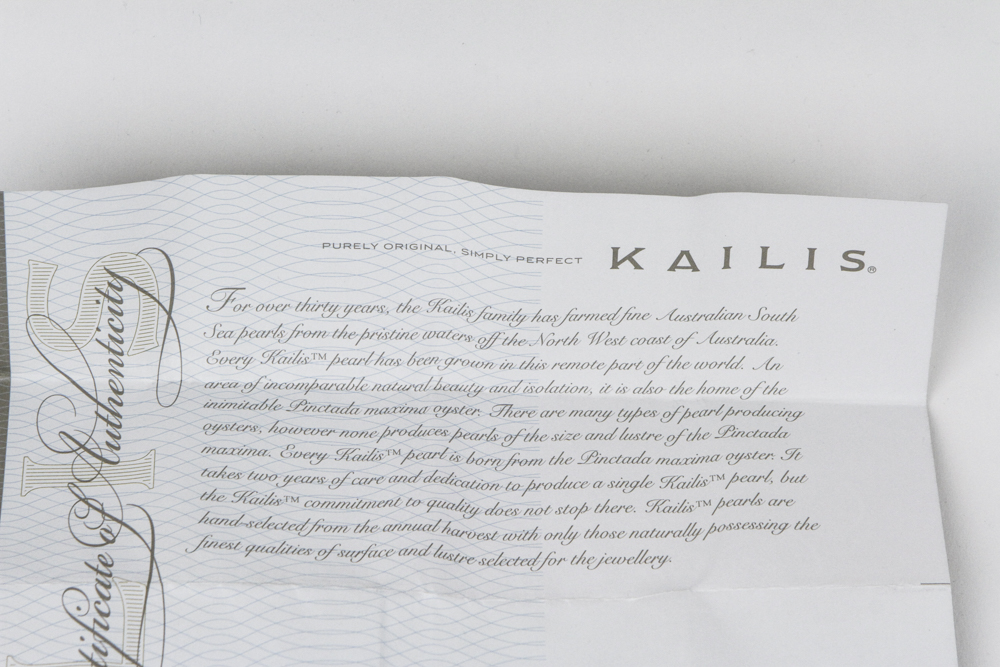 PURELY ORIGINAL. SIMPLY PERFECT
KAILIS®
For over thirty years, the Kailis family has farmed fine Australian South
Sea pearls from the pristine waters off the North West coast of Australia.
Every Kailis™ pearl has been grown in this remote part of the world. An
area of incomparable natural beauty and isolation, it is also the home of the
inimitable Pinctada maxima oyster. There are many types of pearl producing
oysters, however none produces pearls of the size and lustre of the Pinctada
maxima. Every Kailis™ pearl is born from the Pinctada maxima oyster. It
takes two years of care and dedication to produce a single Kailis™ pearl, but
the Kailis™ commitment to quality does not stop there. Kailis™ pearls are
hand-selected from the annual harvest with only those naturally possessing the
finest qualities of surface and lustre selected for the jewellery.
tificate of Authenticity
LIS